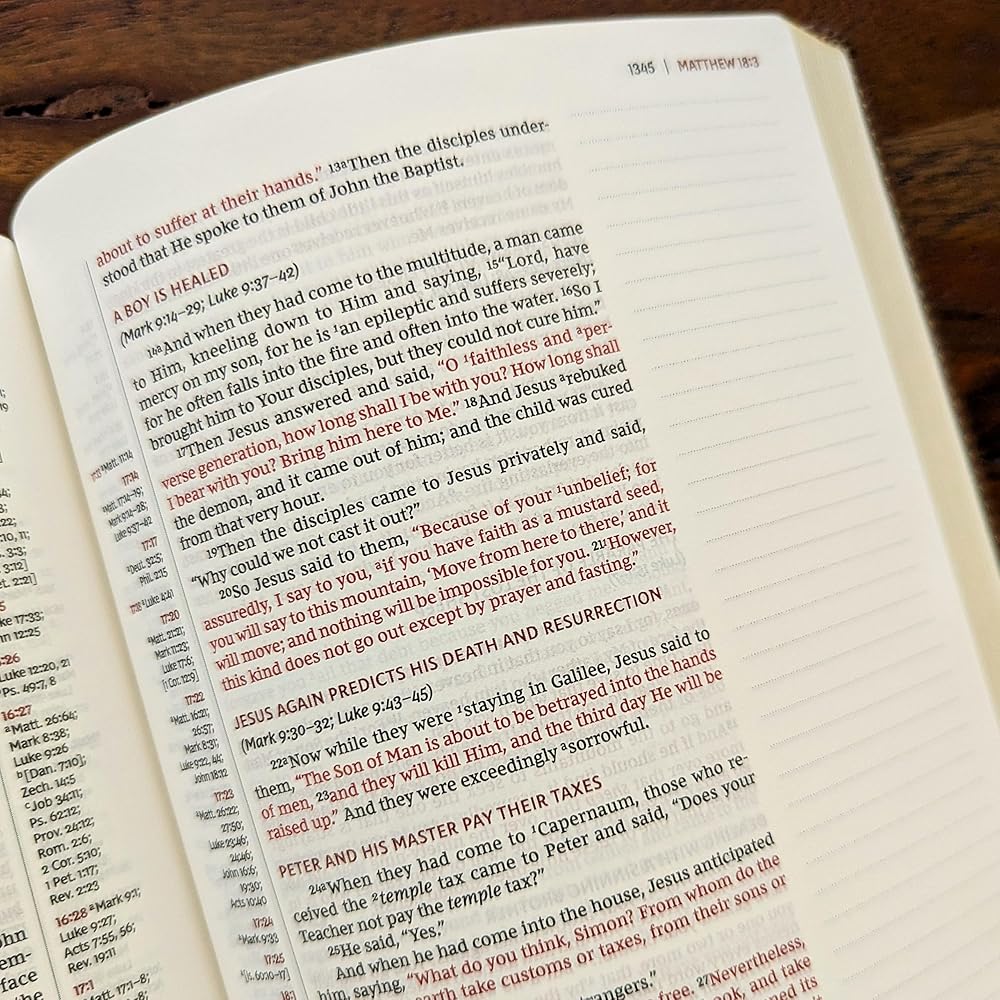 1345 | MATTHEW 18:3
about to suffer at their hands.” 13aThen the disciples under-
stood that He spoke to them of John the Baptist.
A BOY IS HEALED
(Mark 9:14–29; Luke 9:37–42)
14aAnd when they had come to the multitude, a man came
to Him, kneeling down to Him and saying, 15“Lord, have
mercy on my son, for he is 1an epileptic and suffers severely;
for he often falls into the fire and often into the water. 16So I
brought him to Your disciples, but they could not cure him.”
17Then Jesus answered and said, “O 1faithless and aper-
verse generation, how long shall I be with you? How long shall
I bear with you? Bring him here to Me.” 18And Jesus arebuked
the demon, and it came out of him; and the child was cured
from that very hour.
19Then the disciples came to Jesus privately and said,
“Why could we not cast it out?”
20So Jesus said to them, “Because of your 1unbelief; for
assuredly, I say to you, aif you have faith as a mustard seed,
you will say to this mountain, ‘Move from here to there,’ and it
will move; and nothing will be impossible for you. 21However,
this kind does not go out except by prayer and fasting.”
JESUS AGAIN PREDICTS HIS DEATH AND RESURRECTION
(Mark 9:30–32; Luke 9:43–45)
22aNow while they were 1staying in Galilee, Jesus said to
them, “The Son of Man is about to be betrayed into the hands
of men, 23and they will kill Him, and the third day He will be
raised up.” And they were exceedingly asorrowful.
PETER AND HIS MASTER PAY THEIR TAXES
24aWhen they had come to 1Capernaum, those who re-
ceived the 2temple tax came to Peter and said, “Does your
Teacher not pay the temple tax?”
25He said, “Yes.”
And when he had come into the house, Jesus anticipated
him, saying, “What do you think, Simon? From whom do the
earth take customs or taxes, from their sons or
27Nevertheless,
and take
17:14
Matt. 17:14–19;
Mark 9:14–28;
Luke 9:37–42
17:17
aDeut. 32:5;
Phil. 2:15
17:18 aLuke 4:41
17:20
aMatt. 21:21;
Mark 11:23;
Luke 17:6;
[1 Cor. 12:9]
17:22
aMatt. 16:21;
26:57;
Mark 8:31;
Luke 9:22, 44;
John 18:12
17:23
aMatt. 26:22;
27:50;
Luke 23:46;
24:46;
John 16:6;
19:30;
Acts 10:40
17:24
aMark 9:33
17:25
a[Is. 60:10–17]
18:1
Luke 12:20, 21
Ps. 49:7, 8
16:27
aMatt. 26:64;
Mark 8:38;
Luke 9:26
b[Dan. 7:10];
Zech. 14:5
cJob 34:11;
Ps. 62:12;
Prov. 24:12;
Rom. 2:6;
2 Cor. 5:10;
1 Pet. 1:17;
Rev. 2:23
16:28 aMark 9:1;
Luke 9:27;
Acts 7:55, 56;
Rev. 19:11
17:1
Matt. 17:1–8;